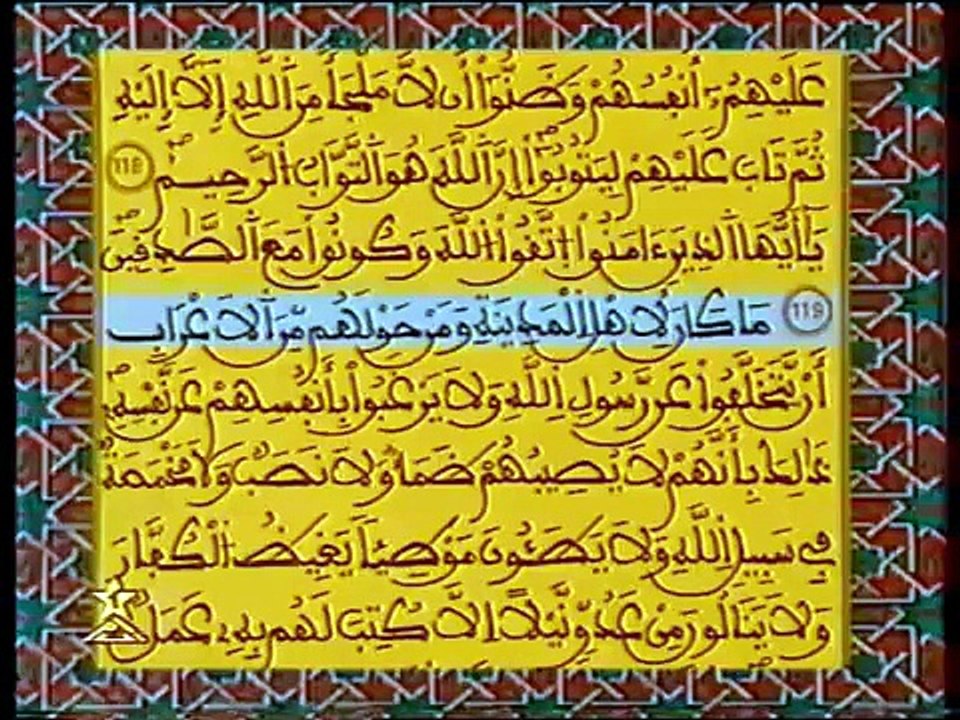 عَلَيْهِمُۥٓ أَنفُسُهُمْ وَظَنُّوٓاْ أَن لَّا مَلْجَأَ مِنَ اَللَّهِ إِلَّآ إِلَيْهِ
ثُمَّ تَابَ عَلَيْهِمْ لِيَتُوبُوٓاْ إِنَّ اَللَّهَ هُوَ اَلتَّوَّابُ اُلرَّحِيمُ 118
يَٰٓأَيُّهَا اَلذِينَ ءَامَنُواْ اُتَّقُواْ اُللَّهَ وَكُونُواْ مَعَ اَلصَّٰدِقِينَ
119 مَا كَانَ لِأَهْلِ اِلْمَدِينَةِ وَمَنْ حَوْلَهُم مِّنَ اَلَاعْرَابِ
أَنْ يَّتَخَلَّفُواْ عَن رَّسُولِ اِللَّهِ وَلَا يَرْغَبُواْ بِأَنفُسِهِمْ عَن نَّفْسِهِۦ
ذَٰلِكَ بِأَنَّهُمْ لَا يُصِيبُهُمْ ظَمَأٌ وَلَا نَصَبٌ وَلَا مَخْمَصَةٌ
فِي سَبِيلِ اِللَّهِ وَلَا يَطَـُٔونَ مَوْطِئاً يَغِيظُ اُلْكُفَّارَ
وَلَا يَنَالُونَ مِنْ عَدُوٍّ نَّيْلاً اِلَّا كُتِبَ لَهُم بِهِۦ عَمَلٌ